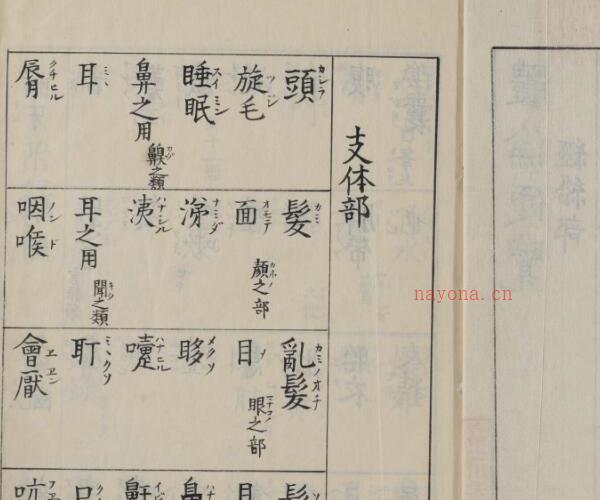 支体部
頭 カシラ 髮 カミ 亂髮 カミノオチ
旋毛 ツジ 面 オモテ 顏之部 カホノ 目 メ 眼之部 マナコノ 目
睡眠 スイミン 涕 ナミダ 眵 メクソ 鼻
鼻之用 齅之類 カグ 洟 ハナシル 嚔 ハナヒル 鼾
耳 ミヽ 耳之用 聞之類 キク 耵 ミヽクソ 口
脣 クチヒル 咽喉 ノンド 會厭 ヱヱン 吭
nayona.cn